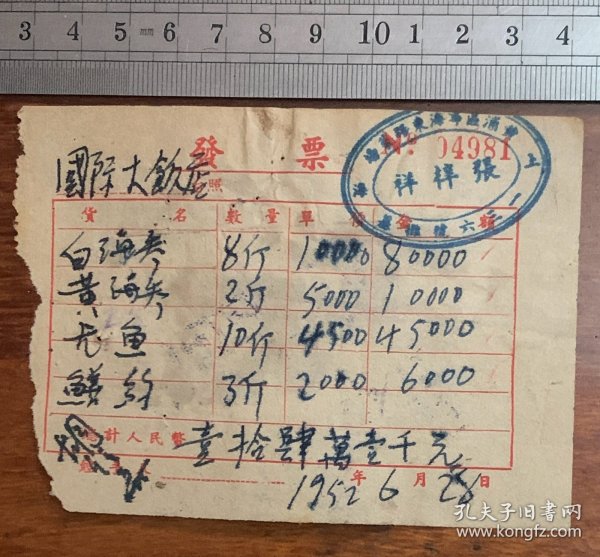 3 4 5 mm 6 7 8 9 10 1 2 3 4
發票
№ 04981
張祥祥
國際大飯店
照
貨名 數量 單價 金額
白海參 8斤 10000 80000
黃海參 2斤 5000 10000
元鱼 10斤 4500 45000
3斤 2000 6000
總計人民幣 壹拾肆萬壹千元
1952年6月28日
孔夫子旧书网
www.kongfz.com